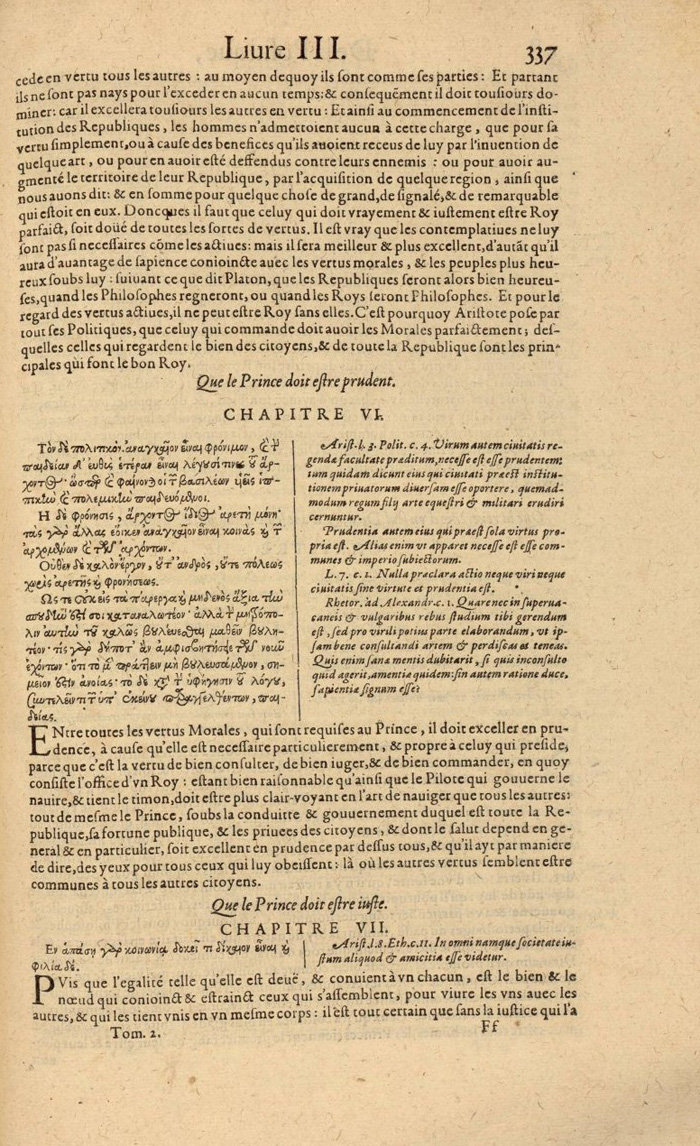 Liure III. 337
cede en vertu tous les autres : au moyen dequoy ils sont comme ses parties : Et partant
ils ne sont pas nays pour l'exceder en aucun temps:& consequẽment il doit tousiours do-
miner: car il excellera tousiours les autres en vertu : Et ainsi au commencement de l'insti-
tution des Republiques, les hommes n'admettoient aucun à cette charge, que pour sa
vertu simplement,ou à cause des benefices qu'ils auoient receus de luy par l'inuention de
quelque art, ou pour en auoir esté deffendus contre leurs ennemis : ou pour auoir au-
gmenté le territoire de leur Republique, par l'acquisition de quelque region, ainsi que
nous auons dit: & en somme pour quelque chose de grand,de signalé,& de remarquable
qui estoit en eux. Doncques il faut que celuy qui doit vrayement & iustement estre Roy
parfaict, soit doüé de toutes les sortes de vertus. Il est vray que les contemplatiues ne luy
sont pas si necessaires cõme les actiues: mais il sera meilleur & plus excellent,d'autãt qu'il
aura d'auantage de sapience conioincte auec les vertus morales, & les peuples plus heu-
reux soubs luy : suiuant ce que dit Platon, que les Republiques seront alors bien heureu-
ses,quand les Philosophes regneront, ou quand les Roys seront Philosophes. Et pour le
regard des vertus actiues,il ne peut estre Roy sans elles.C'est pourquoy Aristote pose par
tout ses Politiques, que celuy qui commande doit auoir les Morales parfaictement; des-
quelles celles qui regardent le bien des citoyens,& de toute la Republique sont les prin-
cipales qui font le bon Roy.
Que le Prince doit estre prudent.
CHAPITRE VI.
Τὸν δὲ πολιτικὸν ἀναγκαῖον εἶναι φρόνιμον,
Ἡ δὲ φρόνησις, ἄρχοντος ἴδιος ἀρετὴ μόνη·
τὰς γὰρ ἄλλας ἔοικεν ἀναγκαῖον εἶναι κοινὰς
χωρὶς ἀρετῆς φρονήσεως.
Arist. l. 3. Polit. c. 4. Virum autem ciuitatis re-
gendæ facultate præditum,necesse est esse prudentem:
tum quidam dicunt eius qui ciuitati præest institu-
tionem priuatorum diuersam esse oportere, quemad-
modum regum filij arte equestri & militari erudiri
cernuntur.
Prudentia autem eius qui præest sola virtus pro-
pria est. Alias enim vt apparet necesse est esse com-
munes & imperio subiectorum.
L. 7. c. 1. Nulla præclara actio neque viri neque
ciuitatis sine virtute et prudentia est.
Rhetor. ad Alexandr. c. 1. Quare nec in superua-
caneis & vulgaribus rebus studium tibi gerendum
est, sed pro virili potius parte elaborandum, vt ip-
sam bene consultandi artem & perdiscas et teneas.
Quis enim sanæ mentis dubitarit, si quis inconsulto
quid agerit,amentiæ quidem:sin autem ratione duce,
sapientiæ signum esse?
ENtre toutes les vertus Morales, qui sont requises au Prince, il doit exceller en pru-
dence, à cause qu'elle est necessaire particulierement, & propre à celuy qui preside,
parce que c'est la vertu de bien consulter, de bien iuger,& de bien commander, en quoy
consiste l'office d'vn Roy : estant bien raisonnable qu'ainsi que le Pilote qui gouuerne le
nauire,& tient le timon,doit estre plus clair-voyant en l'art de nauiger que tous les autres:
tout de mesme le Prince, soubs la conduitte & gouuernement duquel est toute la Re-
publique,sa fortune publique, & les priuees des citoyens, & dont le salut depend en ge-
neral & en particulier, soit excellent en prudence par dessus tous,& qu'il ayt par maniere
de dire,des yeux pour tous ceux qui luy obeissent : là où les autres vertus semblent estre
communes à tous les autres citoyens.
Que le Prince doit estre iuste.
CHAPITRE VII.
Ἐν ἁπάσῃ γὰρ κοινωνίᾳ δοκεῖ τι δίκαιον εἶναι ϗ
φιλία δέ.
Arist. l.8. Eth.c.11. In omni namque societate iu-
stum aliquod & amicitia esse videtur.
PVis que l'egalité telle qu'elle est deuë, & conuient à vn chacun, est le bien & le
nœud qui conioinct & estrainct ceux qui s'assemblent, pour viure les vns auec les
autres,& qui les tient vnis en vn mesme corps : il est tout certain que sans la iustice qui l'a
Tom. 2. Ff